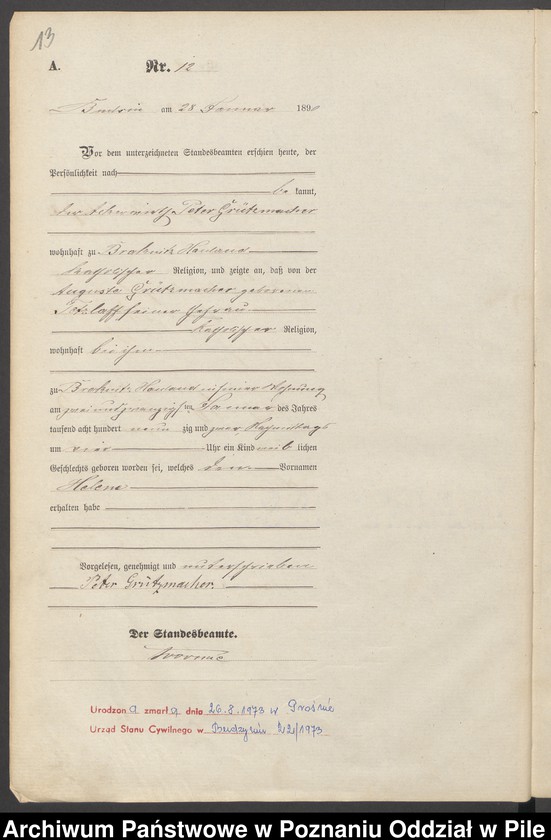 13
A. Nr. 12
am 28 Januar 189
Vor dem unterzeichneten Standesbeamten erschien heute, der
Persönlichkeit nach
be kannt,
der Ackerwirth Peter Grützmacher
wohnhaft zu Hauland
katholischer Religion, und zeigte an, daß von der
Auguste Grützmacher geborenen
Tetzlaff seiner Ehefrau
katholischer Religion,
wohnhaft bei ihm
zu Hauland in seiner Wohnung
am zwei und zwanzigsten Januar des Jahres
tausend acht hundert neun zig und zwar Nachmittags
um vier Uhr ein Kind weib lichen
Geschlechts geboren worden sei, welches den Vornamen
Helene
erhalten habe
Vorgelesen, genehmigt und unterschrieben
Peter Grützmacher.
Der Standesbeamte.
Urodzon a zmarł a dnia 26.8.1973 w
Urząd Stanu Cywilnego w Budzyniu 22/1973
Archiwum Państwowe w Poznaniu Oddział w Pile